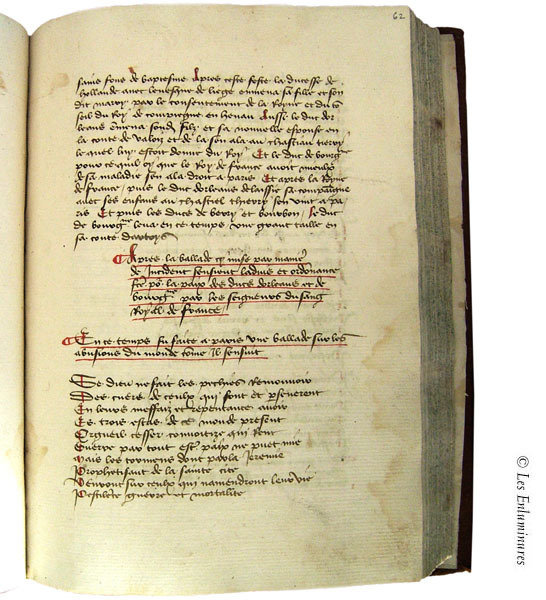 62
sains fons de baptesme Apres ceste feste la ducesse de
hollande avec levesque de liege enmena sa fille et son
dit mary par le consentement de la Royne et du
seil du Roy de compiegne en henau Aussi le duc dor
leans enmena son filz et sa nouvelle espouse en
la conte de valois et de la son ala au chastiau tierry
le quel luy estoit donne du Roy Et le duc de bourg
pour ce quil oy que le Roy de france avoit
de sa maladie son ala droit a paris Et apres la Royne
de france puis le duc dorleans delaissie sa compaigne
avec ses enfans au chastiel thierry son vint a pa
ris Et puis les ducs de berry et bourbon Le duc
de bourg leva en ce temps une grant taille en
sa conte dartois
Apres la ballade mise par manie
de Incident sensieut ladvis et ordonnance
po la paix des ducs dorleans et de
bourg par les seigneurs du sang
Royal de france
En ce temps fu faite a paris une ballade sur les
abusions du monde come il sensuit
Se dieu ne fait les pechies Remouvoir
Des cuers de ceulx qui font et perseverent
En leurs meffais et repentance avoir
Les trois estas de ce monde present
Orgueil cesser convoitize qui
Guerre par tout est paix ne puet
Mais les tourmens dont parla Jeremie
Prophetisant de la sainte cite
Venront sur ceulx qui namendront leur vie
Pestilence guerre et mortalite
© Les Enluminures